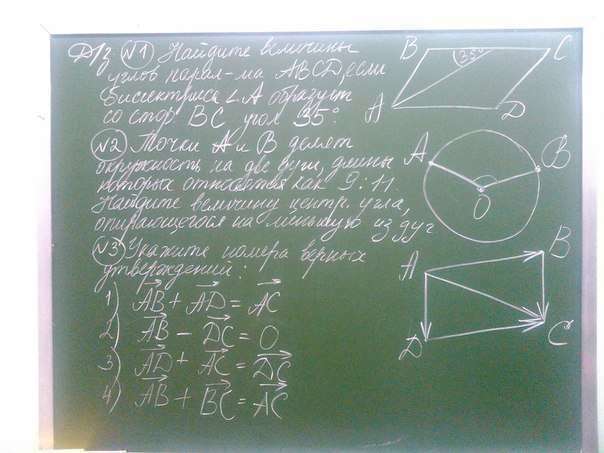 Д/з №1 Найдите величины
углов парал-ма ABCD, если
биссектриса ∠A образует
со стор. BC угол 35°
№2 Точки A и B делят
окружность на две дуги, длины
которых относятся как 9:11.
Найдите величину центр. угла,
опирающегося на меньшую из дуг
№3 Укажите номера верных
утверждений:
1) AB + AD = AC
2) AB - DC = 0
3) AD + AC = DC
4) AB + BC = AC
B 35° C
A D
A B
O
A B
D C